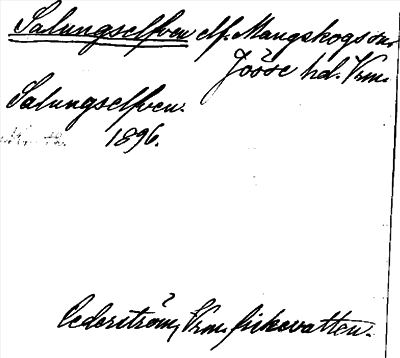 Salungselfven elf. Mangskogs sn,
Jösse hd. Vrm.
Salungselfven.
1896.
Cederström, Vrm, fiskevatten.